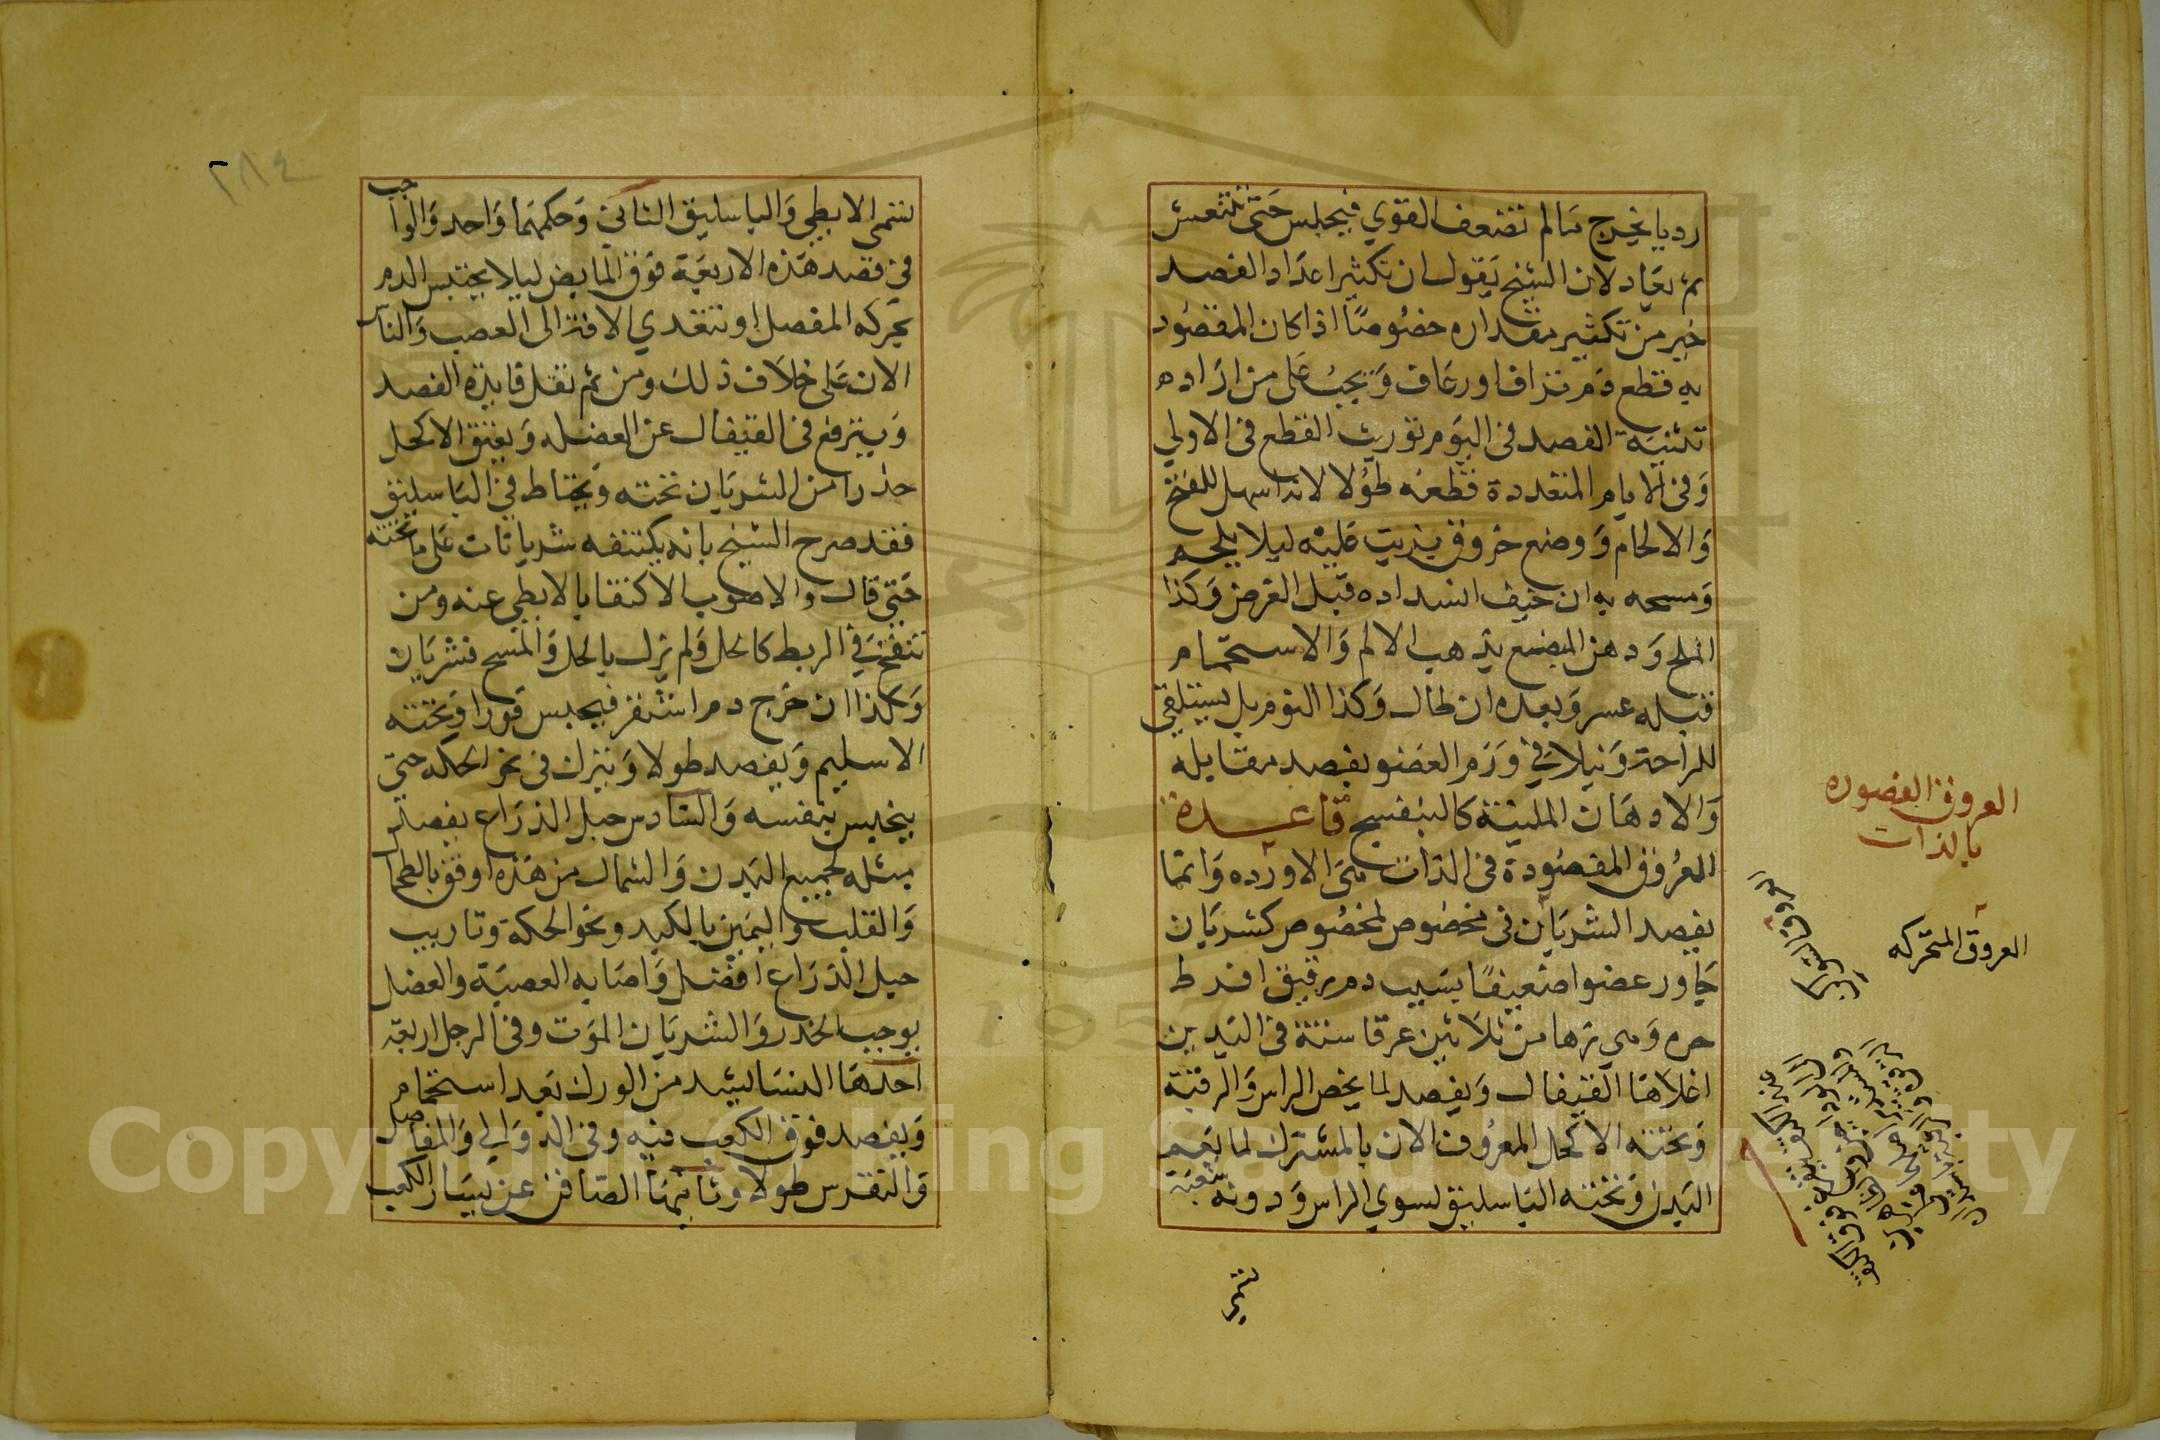 رديا يخرج مالم تضعف القوي فيحبس حتى تنتعش
ثم يعاد لان الشيخ يقول ان تكثير اعداد الفصد
خير من تكثير مقداره خصوصًا اذا كان المقصود
به قطع دم نزاف او رعاف وَيجبُ على من اراده
تثنية الفصد في اليوم توريث القطع في الاولي
وَفي الايام المتعددة قطعه طولا لانه اسهل للفتح
وَالالحام وَوضع خروق بزيت عليه ليلا يلحم
وَمسحه به ان خيف انسداده قبل الغرض وَكذا
الملح وَدهن المبضع يذهب الالم وَالاستحمام
قبله عسر وَبعده ان طال وَكذا النوم بل يستلقي
للراحة وَنيلا في وَرَم العضو يفصد مقابله
وَالادهان الملينة كالبنفسج قاعدة
العروق المقصودة في الذات هي الاورده وَانما
يفصد الشريان في مخصوص لمخصوص كشريان
جاور عضوا ضعيفًا بسبب دم رقيق افرط
حره وَهي ترها من ثلاثين عرقا ستة في اليدين
اعلاها القيفال وَيفصد لما يخص الراس وَالرقبة
وَتحته الاكحل المعروف الان بالمشترك لما يعم
البدن وَتحته الباسليق لسوي الراس وَدونه شعبة
تسمي
العروق الفصوده
بالذات
العروق المتحركه
٢٨٤
تسمي الابطي وَالباسليق الثاني وَحكمهما وَاحد وَالواجب
في فصد هذه الاربعة فوق المابض ليلا يحتبس الدم
بحركه المفصل او تتعدي الافة الى العصب وَالناس
الان على خلاف ذلك ومن ثم تقل فايدة الفصد
وَيترفع في القيفال عن العضله وَيعمق الاكحل
حذرا من الشريان تحته وَيحتاط في الباسليق
فقد صرح الشيخ بانه يكتنفه شريانات على ما تحته
حَتى قال والاصوب الاكتفا بالابطي عنه ومن
تنفخ في الربط كالحل وَلم يزل بالحل وَالمسح فشريان
وَكذا ان خرج دم اشقر فيحبس فورا وَتحته
الاسليم وَيفصد طولا وَيترك في نحو الحكه حتى
ينحبس بنفسه وَالسادس حبل الذراع يفصد
مثله لجميع البدن وَالشمال من هذه اوفق بالطحال
وَالقلب وَاليمين بالكبد ونحو الحكة وتاريب
حبل الذراع افضل وَاصابه العصبية والعضل
يوجب الخدر وَالشريان الموت وفي الرجل اربعة
احدها النسا يشد من الورك بعد استحمام
وَيفصد فوق الكعب فيه وفي الدوالي وَالمفاصل
وَالنقرس طولا وثانيها الصافن عن يسار الكعب
Copyright © King Saud University
1957